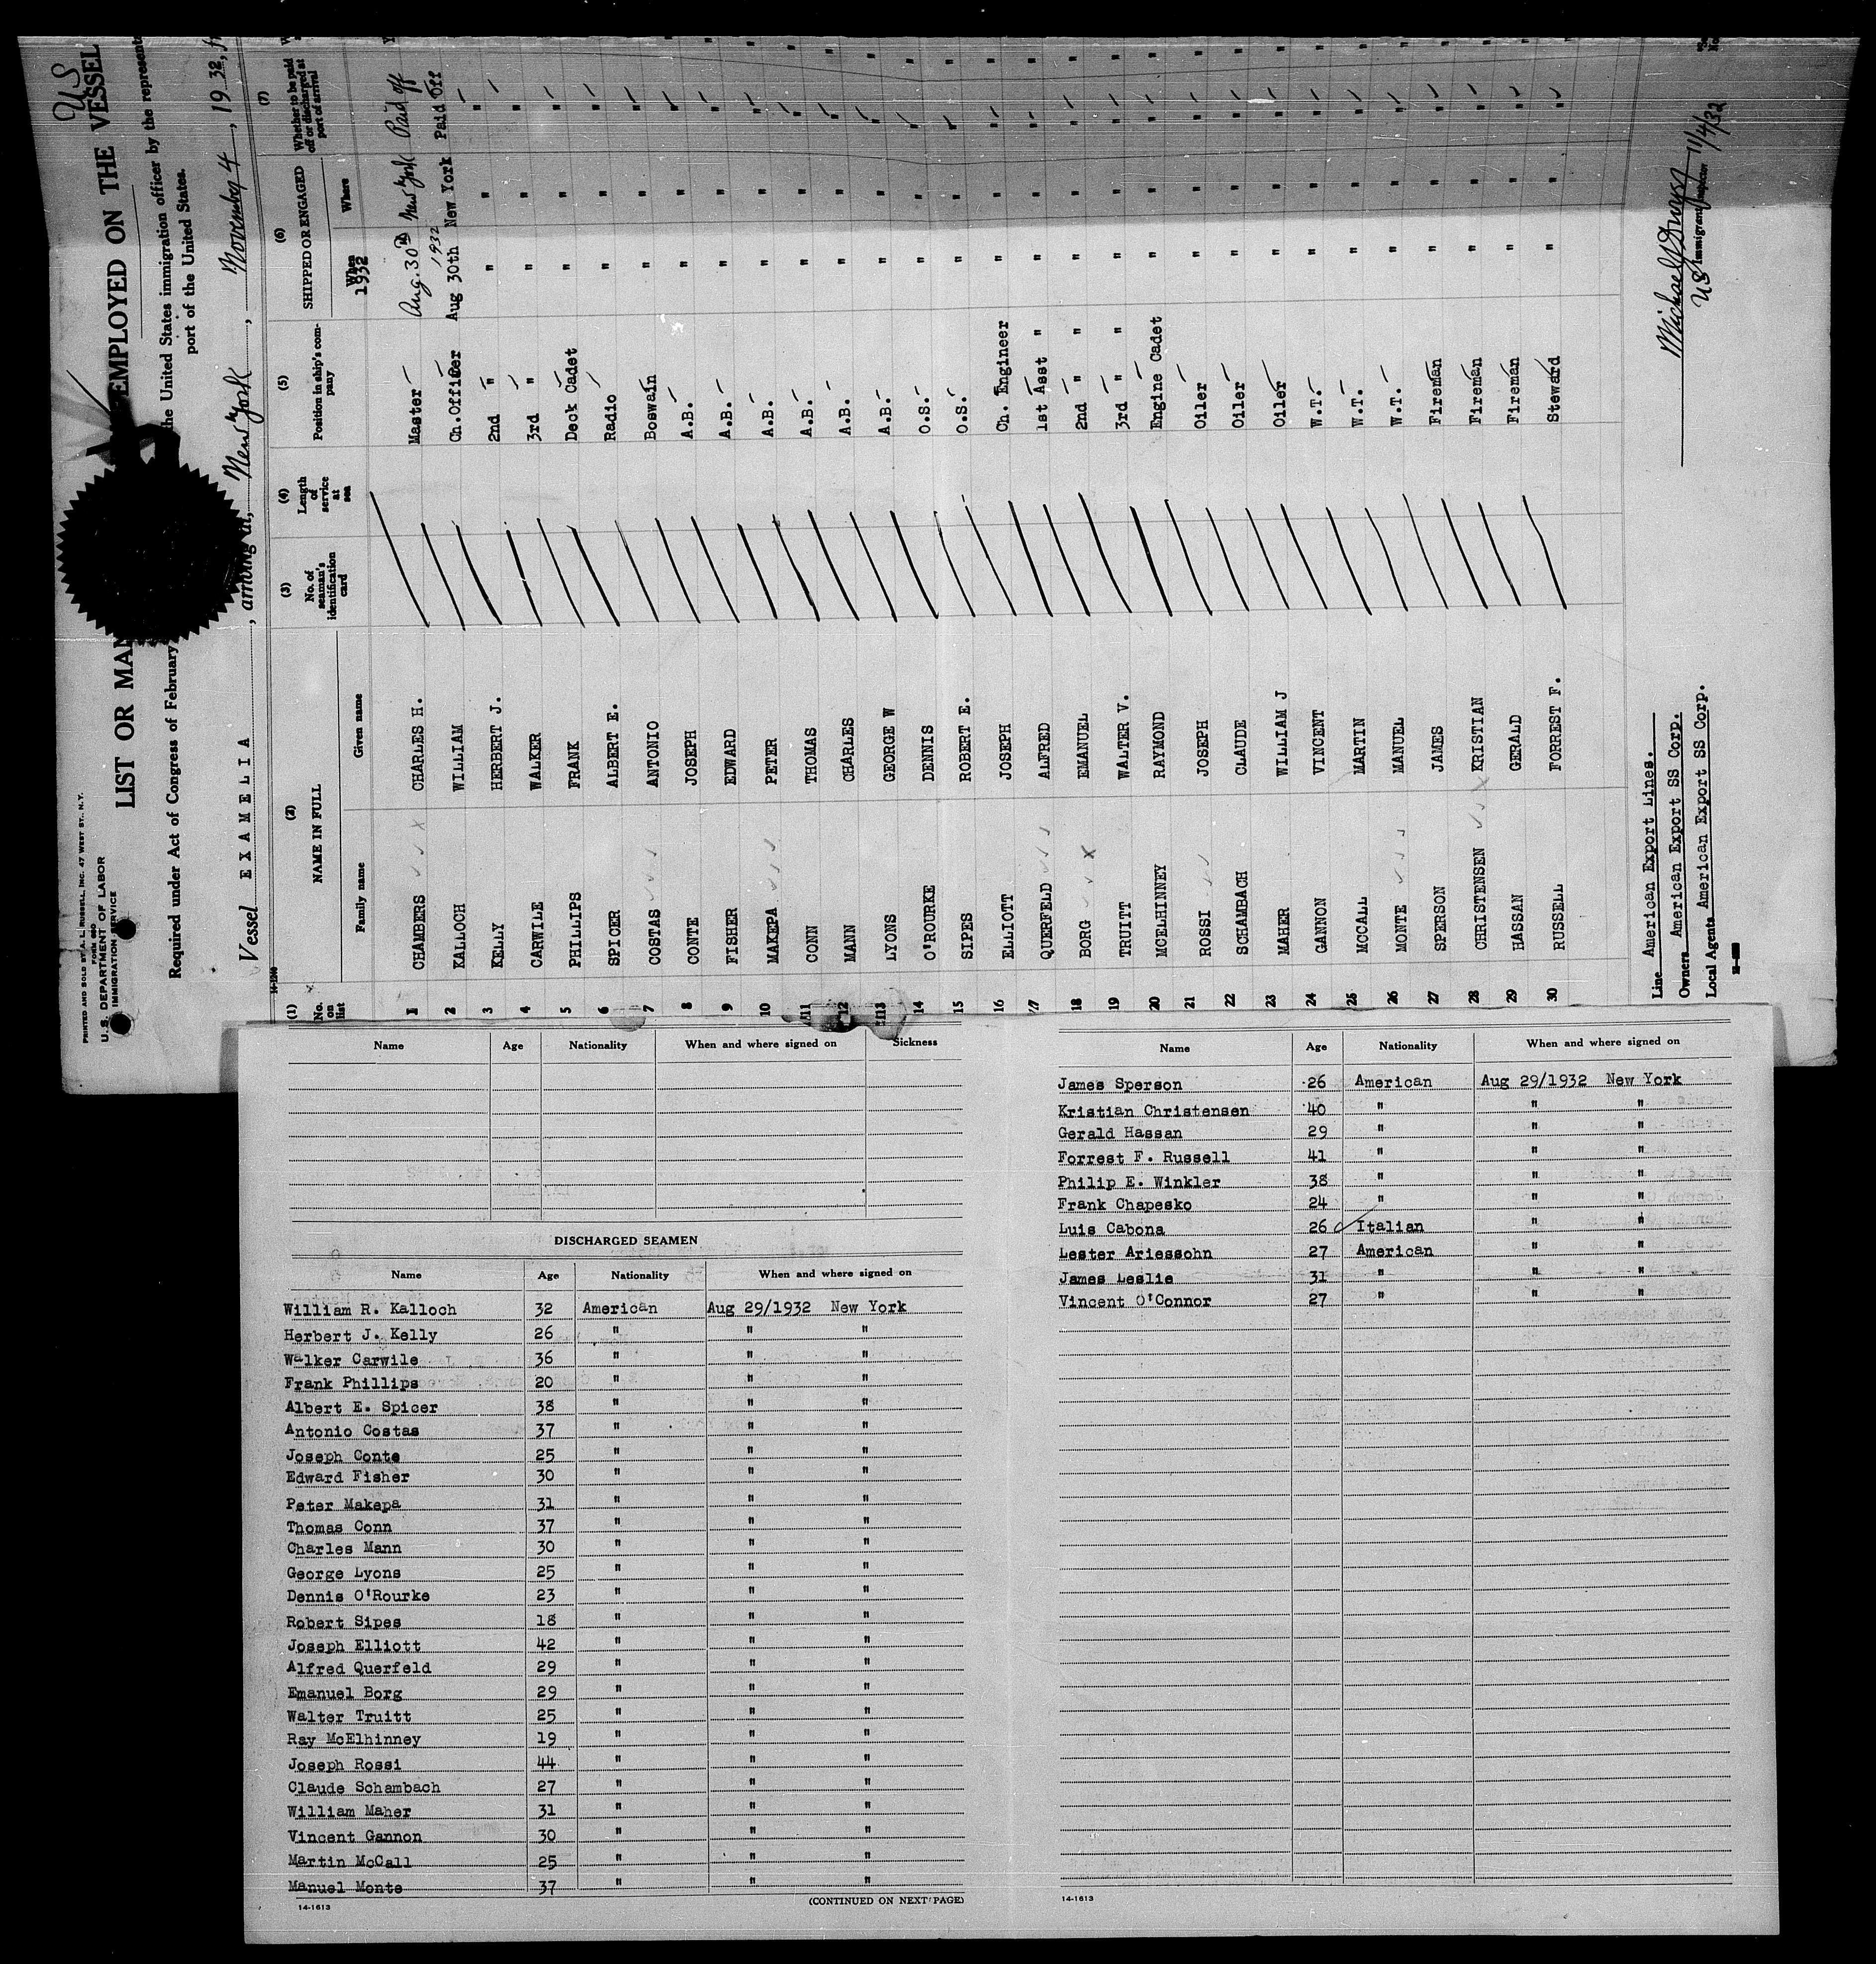 PRINTED AND SOLD BY A. L. RUSSELL, INC. 47 WEST ST., N.Y.
FORM 680
U.S. DEPARTMENT OF LABOR
IMMIGRATION SERVICE
US
LIST OR MAN EMPLOYED ON THE VESSEL
Required under Act of Congress of February the United States immigration officer by the represent
port of the United States.
Vessel EXAMELIA, arriving at, New York, November 4, 1932, fr
14-1240
(1) (2) (3) (4) (5) (6) (7)
No. on list NAME IN FULL No. of seaman's identification card Length of service at sea Position in ship's company SHIPPED OR ENGAGED Whether to be paid off or discharged at port of arrival
Family name Given name When Where
1932
1 CHAMBERS CHARLES H. Master Aug. 30th New York Paid off
1932
2 KALLOCH WILLIAM Ch.Officer Aug 30th New York Paid Off
3 KELLY HERBERT J. 2nd " " " "
4 CARWILE WALKER 3rd " " " "
5 PHILLIPS FRANK Deck Cadet " " "
6 SPICER ALBERT E. Radio " " "
7 COSTAS ANTONIO Boswain " " "
8 CONTE JOSEPH A.B. " " "
9 FISHER EDWARD A.B. " " "
10 MAKEPA PETER A.B. " " "
11 CONN THOMAS A.B. " " "
12 MANN CHARLES A.B. " " "
13 LYONS GEORGE W A.B. " " "
14 O'ROURKE DENNIS O.S. " " "
15 SIPES ROBERT E. O.S. " " "
16 ELLIOTT JOSEPH Ch. Engineer " " "
17 QUERFELD ALFRED 1st Asst " " " "
18 BORG EMANUEL 2nd " " " " "
19 TRUITT WALTER V. 3rd " " " " "
20 MCELHINNEY RAYMOND Engine Cadet " " "
21 ROSSI JOSEPH Oiler " " "
22 SCHAMBACH CLAUDE Oiler " " "
23 MAHER WILLIAM J Oiler " " "
24 GANNON VINCENT W.T. " " "
25 MCCALL MARTIN W.T. " " "
26 MONTE MANUEL W.T. " " "
27 SPERSON JAMES Fireman " " "
28 CHRISTENSEN KRISTIAN Fireman " " "
29 HASSAN GERALD Fireman " " "
30 RUSSELL FORREST F. Steward " " "
Line American Export Lines.
Owners American Export SS Corp.
Local Agents American Export SS Corp.
11/4/32
US Immigrant Inspector
Name Age Nationality When and where signed on Sickness
DISCHARGED SEAMEN
Name Age Nationality When and where signed on
William R. Kalloch 32 American Aug 29/1932 New York
Herbert J. Kelly 26 " " "
Walker Carwile 36 " " "
Frank Phillips 20 " " "
Albert E. Spicer 38 " " "
Antonio Costas 37 " " "
Joseph Conte 25 " " "
Edward Fisher 30 " " "
Peter Makepa 31 " " "
Thomas Conn 37 " " "
Charles Mann 30 " " "
George Lyons 25 " " "
Dennis O'Rourke 23 " " "
Robert Sipes 18 " " "
Joseph Elliott 42 " " "
Alfred Querfeld 29 " " "
Emanuel Borg 29 " " "
Walter Truitt 25 " " "
Ray McElhinney 19 " " "
Joseph Rossi 44 " " "
Claude Schambach 27 " " "
William Maher 31 " " "
Vincent Gannon 30 " " "
Martin McCall 25 " " "
Manuel Monte 37 " " "
14-1613
(CONTINUED ON NEXT PAGE)
Name Age Nationality When and where signed on
James Sperson 26 American Aug 29/1932 New York
Kristian Christensen 40 " " "
Gerald Hassan 29 " " "
Forrest F. Russell 41 " " "
Philip E. Winkler 38 " " "
Frank Chapesko 24 " " "
Luis Cabona 26 Italian " "
Lester Ariessohn 27 American " "
James Leslie 31 " " "
Vincent O'Connor 27 " " "
14-1613